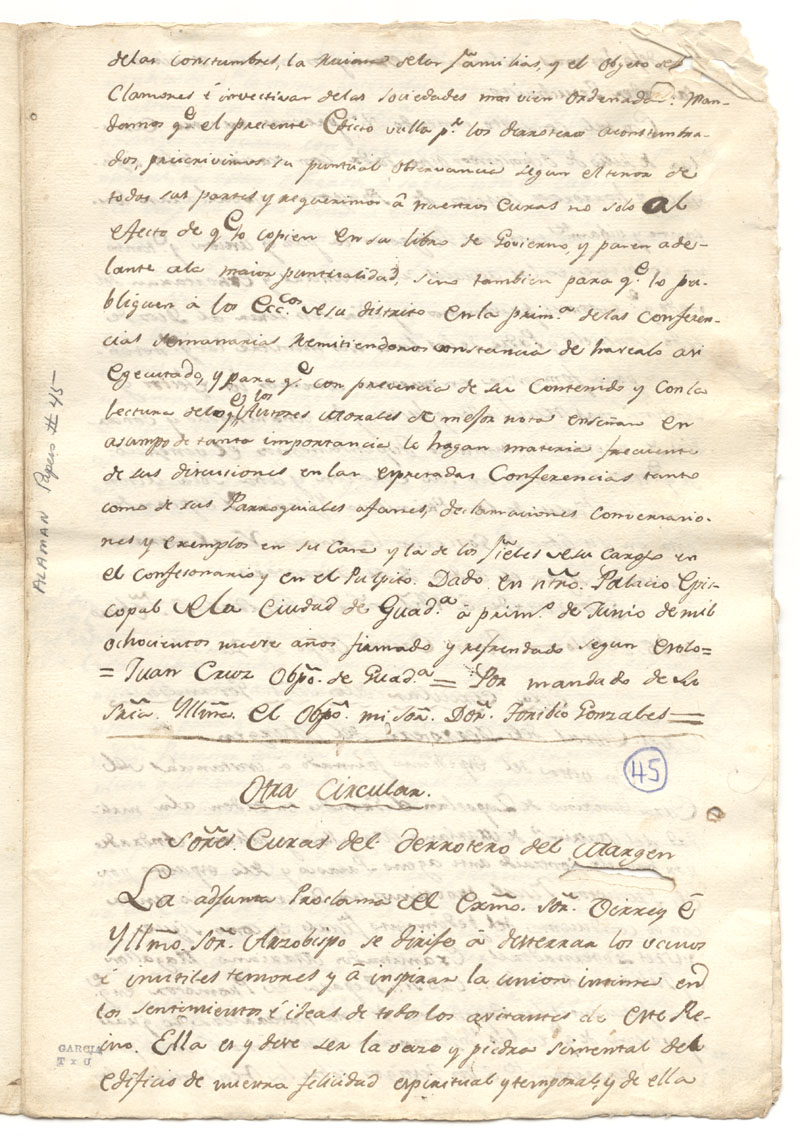 delas constumbres, la Ruina delas familias, y el Objeto de
Clamores é invectivas delas sociedades mas vien Ordenadas: Man-
damos q.e el presente Edicto valla p.r los diroteros acostumbra-
dos, prescrivimos su puntual Observancia segun el tenor de
todas sus partes y requerimos á nuestros Curas no solo al
efecto de q.e lo copien en su libro de Govierno, y pasen ade-
lante ala maior puntualidad, sino tambien para q.e lo pu-
bliquen á los Ecc.cos de su distrito en la prim.a de las Conferen-
cias Semanarias Remitiendonos constancia de haverlo asi
Egecutado, y para q.e con presencia de su Contenido y con la
lectura delo q.e los Autores Morales de mejor nota enseñan en
asumpo de tanta importancia lo hagan materia frecuente
de sus discusiones en las expresadas Conferencias tanto
como de sus Parroquiales afanes, declamaciones Conversacio-
nes y exemplos en su Casa y la de los fieles de su cargo en
el confesonario y en el Pulpito. Dado en ntro. Palacio Epis-
copal de la Ciudad de Guad.a á prim.o de Junio de mil
ochocientos nueve años firmado y refrendado segun estilo=
= Juan Cruz Obpo. de Guad.a = Por mandado de Su
Sria. Yllma. el Obpo. mi Sor. Dor. Toribio Gonzales =
45
Otra Circular.
Sores. Curas del Derrotero del Margen
La adjunta Proclama del Exmo. Sor. Virrey é
Yllmo. Sor. Arzobispo se dirije á desterrar los vanos
é inutiles temores y á inspirar la union intima en
los sentimientos é ideas de todos los avitantes de este Re-
ino. Ella es y deve ser la vaza y piedra simental del
edificio de nuestra felicidad espiritual y temporal, y de ella
ALAMAN Papers # 45
GARCIA
T x U